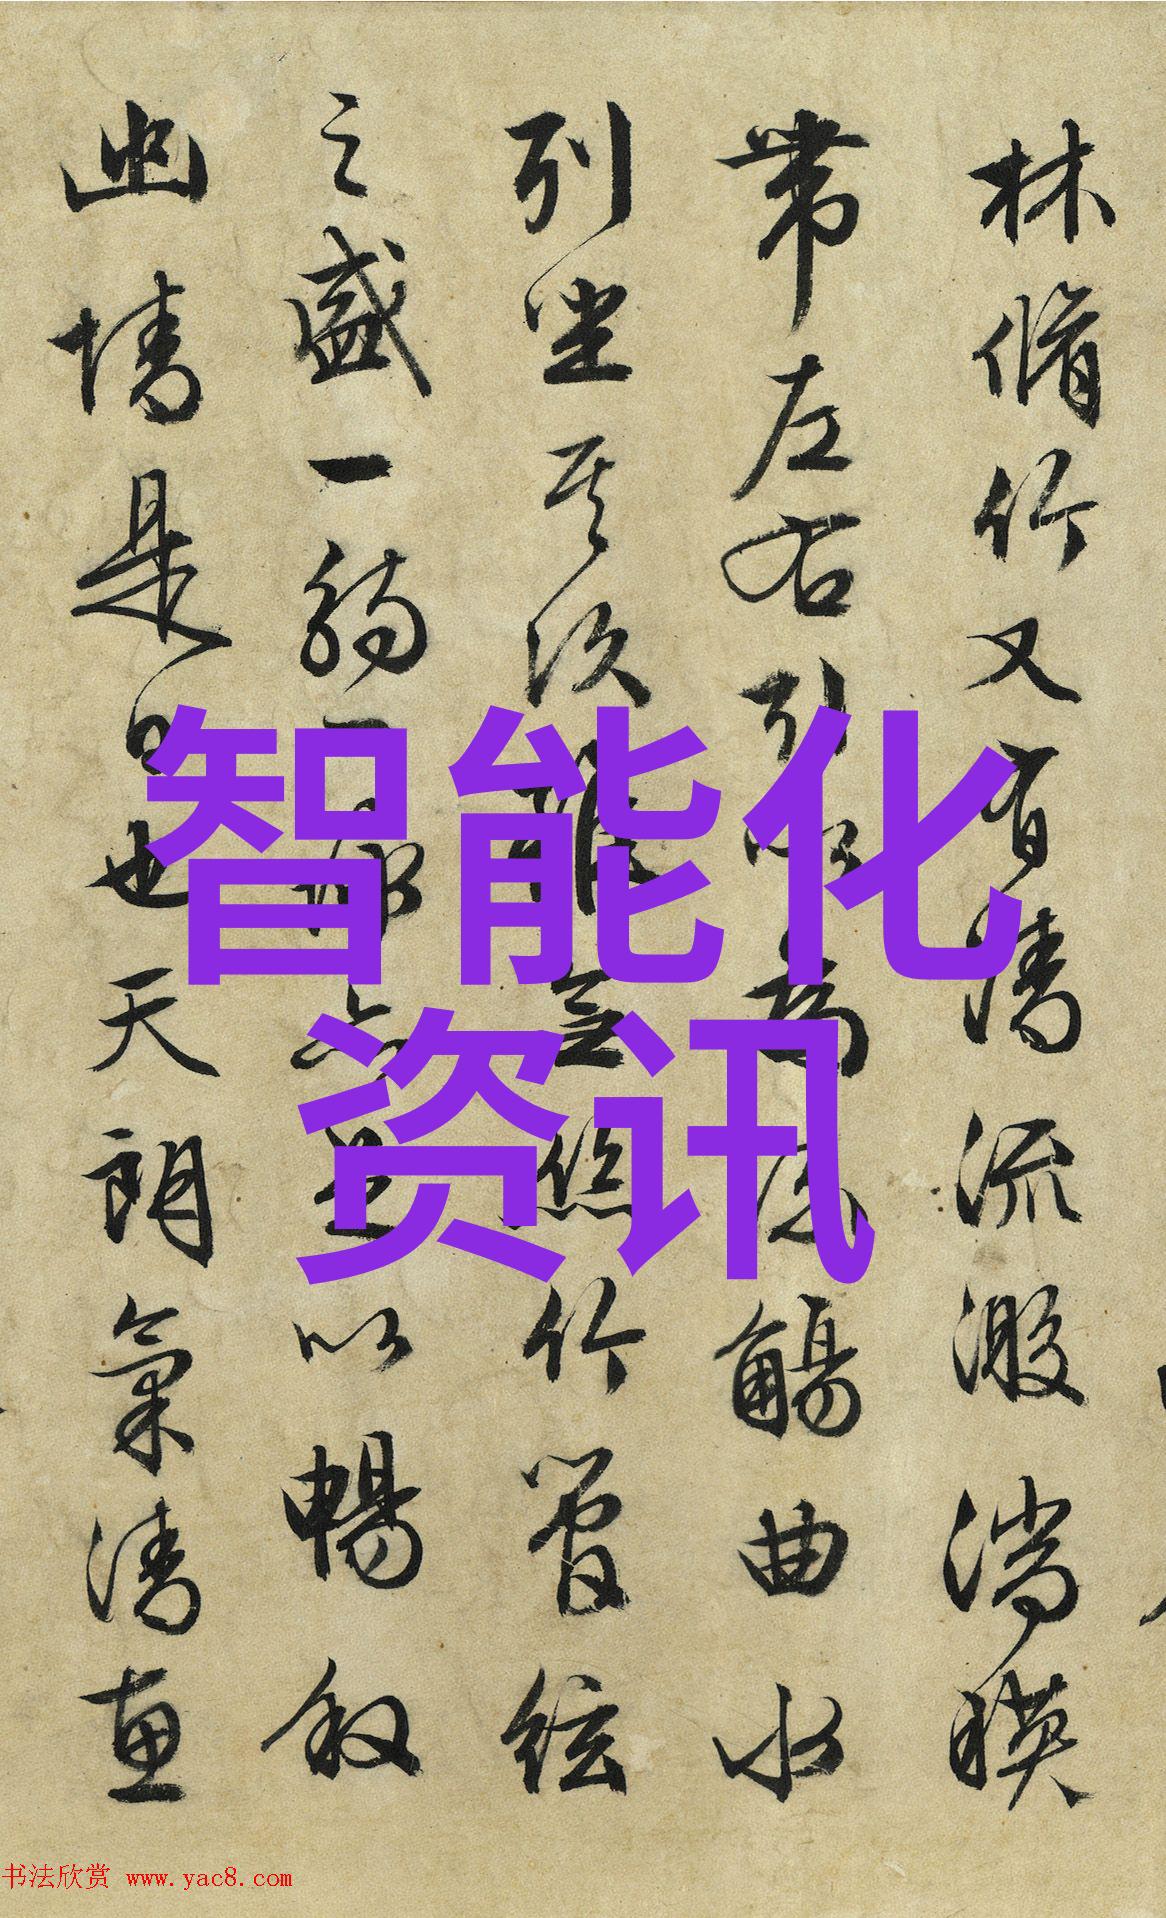 林脩竹又有清流激湍暎
帶左右引以為流觴曲水
列坐其次雖無絲竹管絃
之盛一觴一詠亦足以暢敘
幽情是日也天朗氣清惠
智能化
资讯
书法欣赏 www.yac8.com